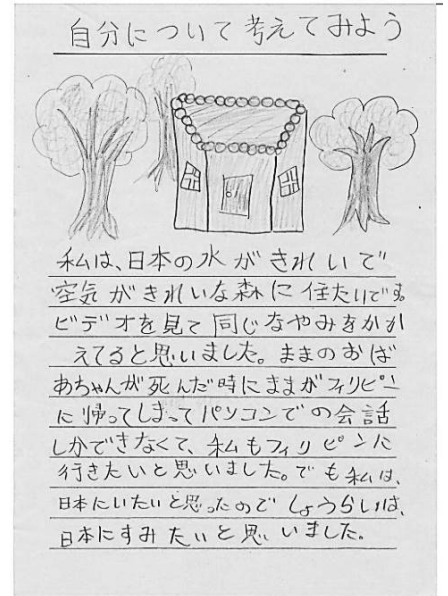 自分について考えてみよう
私は、日本の水がきれいで
空気がきれいな森に住たいです。
ビデオを見て同じなやみをかか
えてると思いました。ままのおば
あちゃんが死んだ時にままがフィリピン
に帰ってしまってパソコンでの会話
しかできなくて、私もフィリピンに
行きたいと思いました。でも私は、
日本にいたいと思ったのでしょうらいは、
日本にすみたいと思いました。